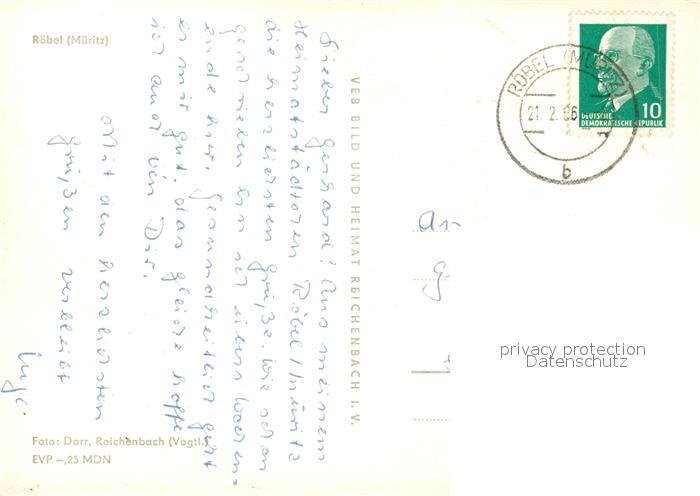 Röbel (Müritz)
Lieber Gerhard! Aus meinem
Heimatstädtchen Röbel/Müritz
die herzlichsten Grüße. Wie schon
geschrieben bin ich übers Wochen-
ende hier. Gesundheitlich geht
es mir gut, das gleiche hoffe
ich auch von Dir.
Mit den herzlichsten
Grüßen verbleibt
VEB BILD UND HEIMAT REICHENBACH I. V.
Foto: Darr, Reichenbach (Vogtl.)
EVP –,25 MDN
RÖBEL (MÜRITZ)
21. 2. 66
b
10
DEUTSCHE
DEMOKRATISCHE REPUBLIK
An
privacy protection
Datenschutz